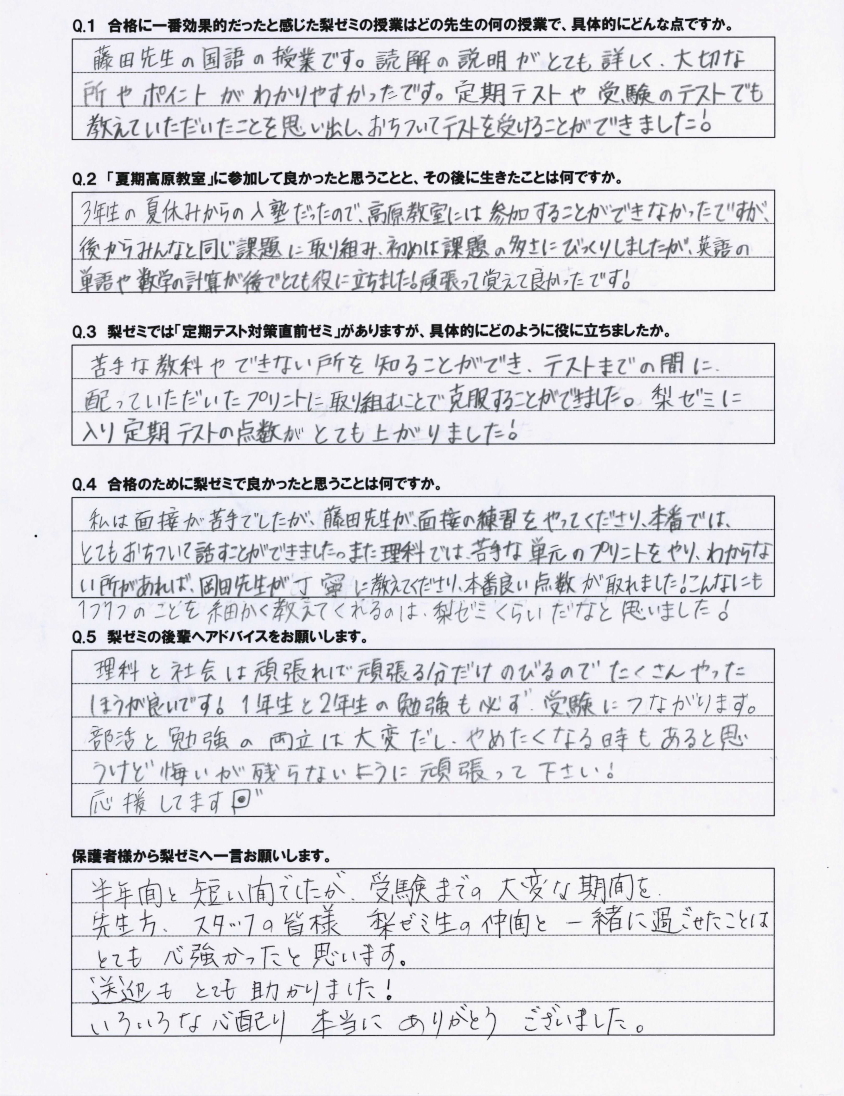 Q.1 合格に一番効果的だったと感じた梨ゼミの授業はどの先生の何の授業で、具体的にどんな点ですか。
藤田先生の国語の授業です。読解の説明がとても詳しく、大切な
所やポイントがわかりやすかったです。定期テストや受験のテストでも
教えていただいたことを思い出し、おちついてテストを受けることができました!
Q.2 「夏期高原教室」に参加して良かったと思うことと、その後に生きたことは何ですか。
3年生の夏休みからの入塾だったので、高原教室には参加することができなかったですが、
後からみんなと同じ課題に取り組み、初めは課題の多さにびっくりしましたが、英語の
単語や数学の計算が後でとても役に立ちました!頑張って覚えて良かったです!
Q.3 梨ゼミでは「定期テスト対策直前ゼミ」がありますが、具体的にどのように役に立ちましたか。
苦手な教科やできない所を知ることができ、テストまでの間に、
配っていただいたプリントに取り組むことで克服することができました。梨ゼミに
入り定期テストの点数がとても上がりました!
Q.4 合格のために梨ゼミで良かったと思うことは何ですか。
私は面接が苦手でしたが、藤田先生が、面接の練習をやってくださり、本番では、
とてもおちついて話すことができました。また理科では、苦手な単元のプリントをやり、わからな
い所があれば、岡田先生が丁寧に教えてくださり、本番良い点数が取れました!こんなにも
1つ1つのことを細かく教えてくれるのは、梨ゼミくらいだなと思いました!
Q.5 梨ゼミの後輩へアドバイスをお願いします。
理科と社会は頑張れば頑張る分だけのびるのでたくさんやった
ほうが良いです! 1年生と2年生の勉強も必ず、受験につながります。
部活と勉強の両立は大変だし、やめたくなる時もあると思
うけど悔いが残らないように頑張って下さい!
応援してます
保護者様から梨ゼミへ一言お願いします。
半年間と短い間でしたが、受験までの大変な期間を、
先生方、スタッフの皆様 梨ゼミ生の仲間と一緒に過ごせたことは
とても心強かったと思います。
送迎もとても助かりました!
いろいろな心配り 本当に ありがとう ございました。